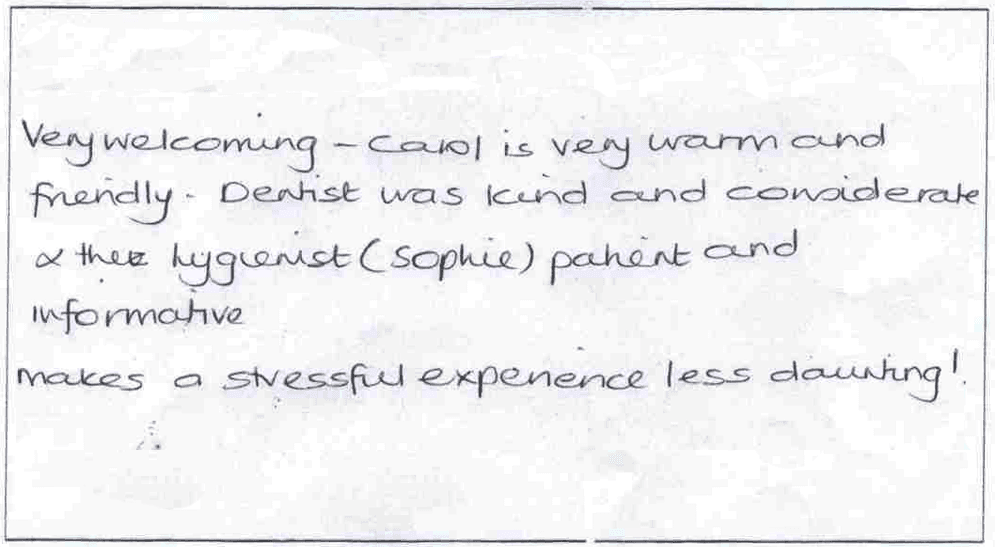 Very welcoming - Carol is very warm and
friendly. Dentist was kind and considerate
& the hygienist (Sophie) patient and
informative
makes a stressful experience less daunting!